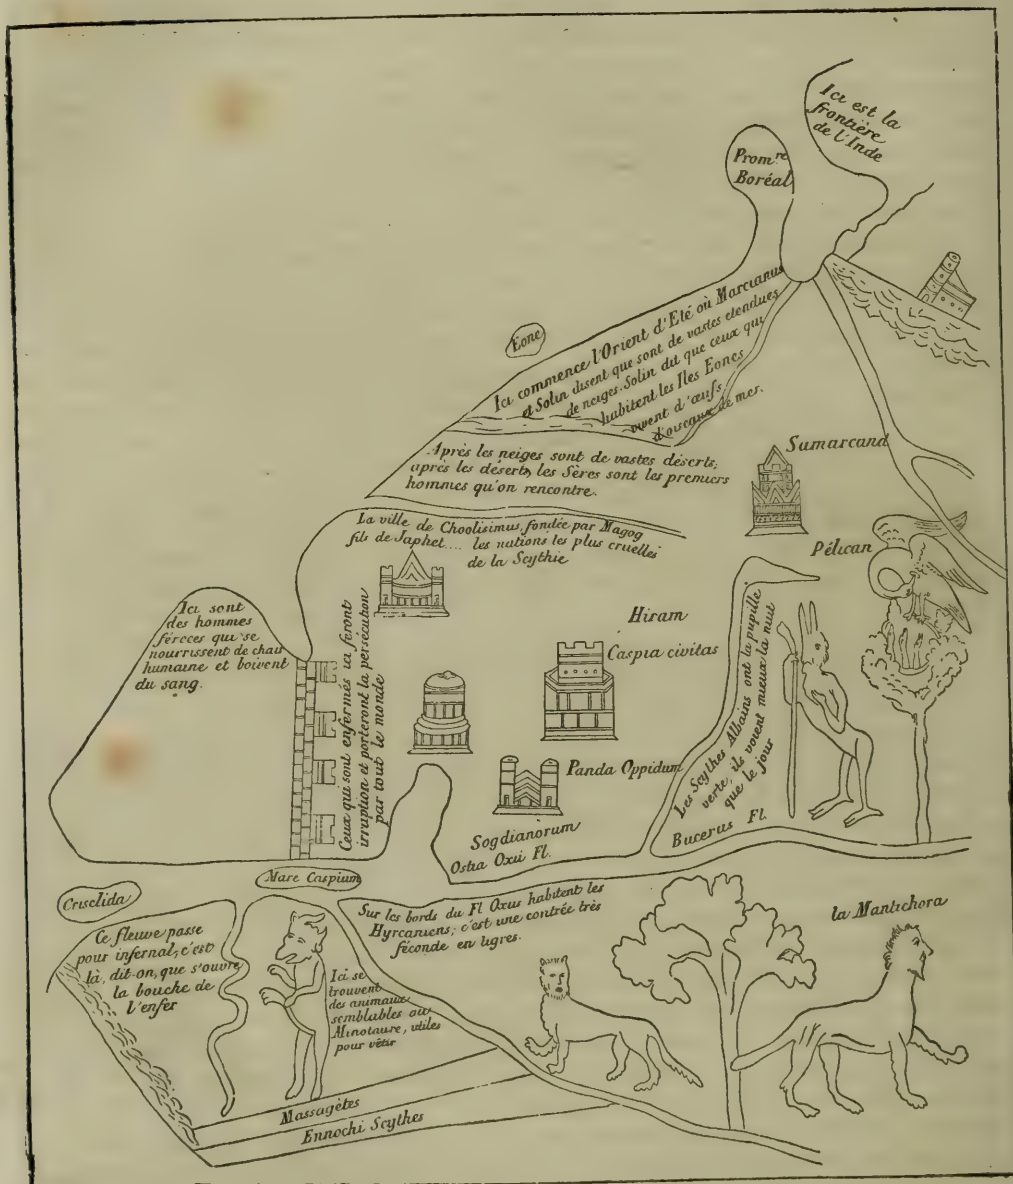 Ici est la
frontière
de l'Inde
Prom.re
Boréal
Eone
Ici commence l'Orient d'Eté où Marcianus
et Solin disent que sont de vastes etendues
de neiges. Solin dit que ceux qui
habitent les Iles Eones
vivent d'œufs
d'oiseaux de mer.
Après les neiges sont de vastes déserts;
après les déserts, les Sères sont les premiers
hommes qu'on rencontre.
Samarcand
La ville de Choolisimus, fondée par Magog
fils de Japhet.... les nations les plus cruelles
de la Scythie
Pélican
Ici sont
des hommes
féroces qui se
nourrissent de chair
humaine et boivent
du sang.
Ceux qui sont enfermés ia feront
irruption et porteront la persécution
par tout le monde
Hiram
Caspia civitas
Panda Oppidum
Les Scythes Albains ont la pupille
verte, ils voient mieux la nuit
que le jour
Sogdianorum
Ostia Oxii Fl.
Bucerus Fl.
Mare Caspium
Criselida
Ce fleuve passe
pour infernal; c'est
là, dit-on, que s'ouvre
la bouche de
l'enfer
Ici se
trouvent
des animaux
semblables au
Minotaure, utiles
pour vêtir
Sur les bords du Fl Oxus habitent les
Hyrcaniens; c'est une contrée très
féconde en tigres.
la Mantichora
Massagètes
Ennochi Scythes